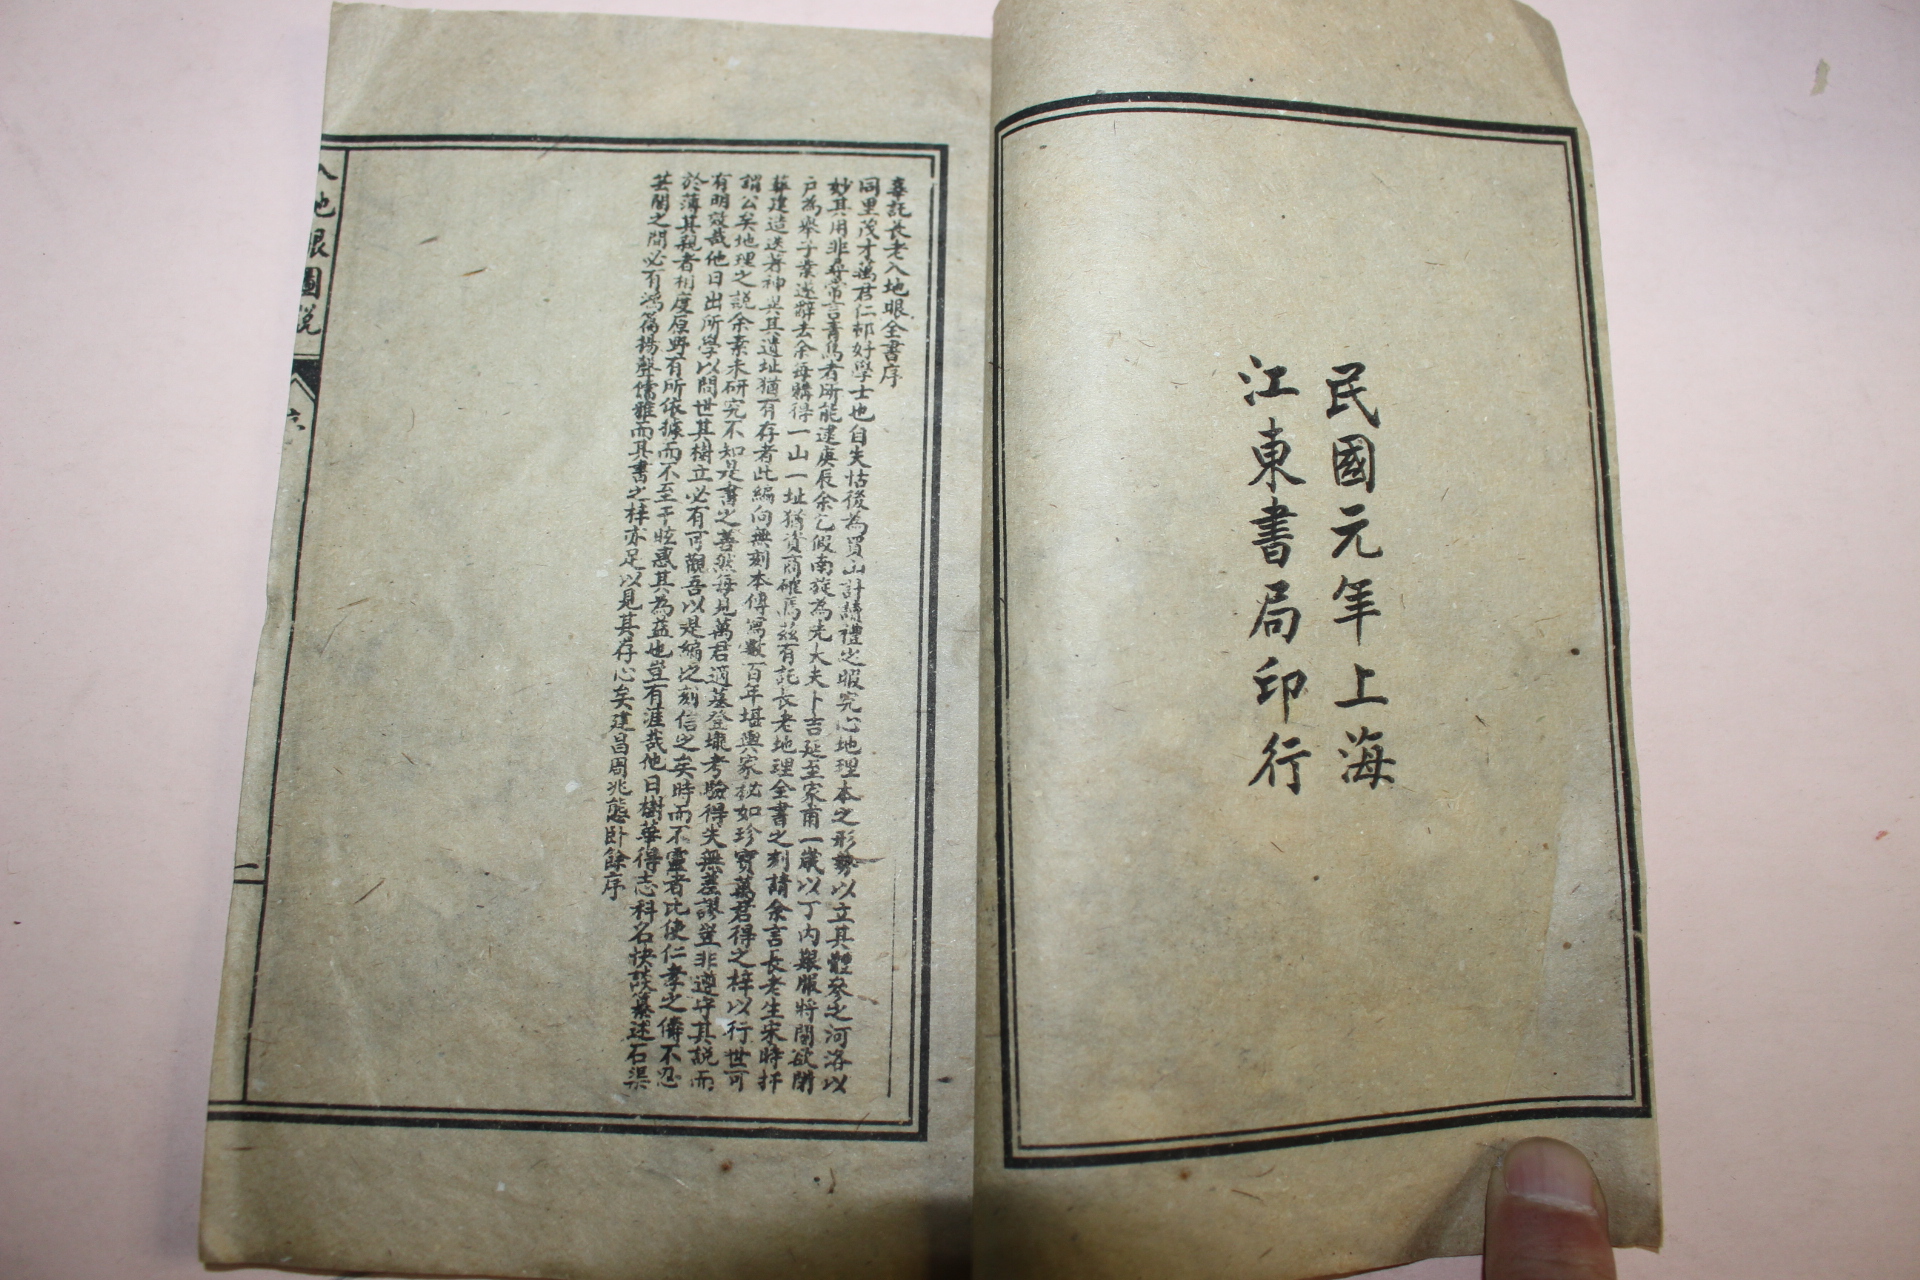 民國元年上海
江東書局印行
辜託長老入地眼全書序
同里茂才萬君仁邨好學士也自失怙後為買山計讀禮之暇究心地理本之形勢以立其體參之河洛以
妙其用非尋常言青烏者所能逮庚辰余乞假南旋為先大夫卜吉延至家甫一歲以丁內艱服將闋欲閉
戶為舉子業遂辭去余每購得一山一址猶資商確焉茲有託長老地理全書之刻請余言長老生宋時扦
葬建造迭著神異其遺址猶有存者此編向無刻本傳寫數百年堪輿家祕如珍寶萬君得之梓以行世可
謂公矣地理之說余素未研究不知是書之善然每見萬君適墓登壠考驗得失無差謬豈非遵守其說而
有明效哉他日出所學以問世其樹立必有可觀吾以是編之刻信之矣時而不靈者比使仁孝之儔不忍
於薄其親者相度原野有所依據而不至于眩惑其為益也豈有涯哉他日樹華得志科名快談纂述石渠
芸閣之間必有鴻篇揚聲儒雅而其書之梓亦足以見其存心矣建昌周兆熊臥餘序
入地眼圖說
序
一